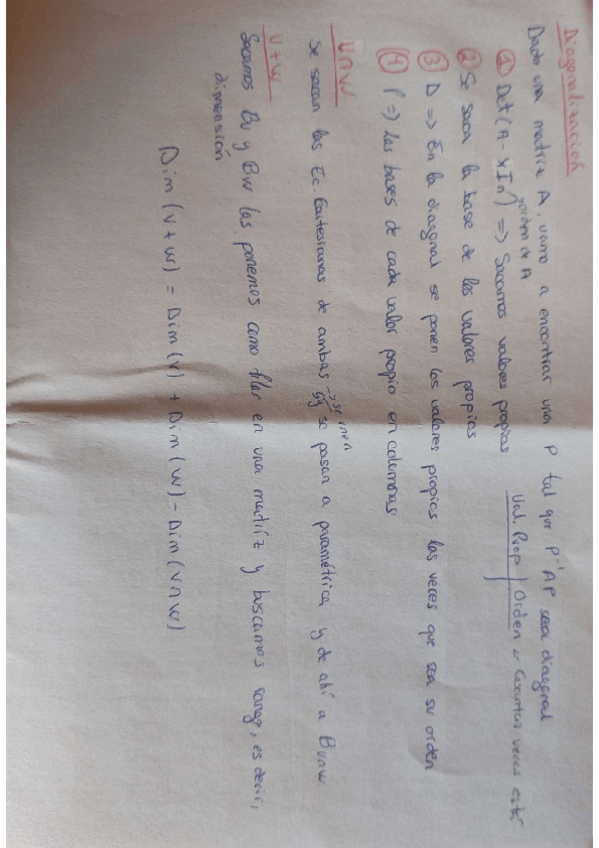 Diagonalización
Dado una matriz A, vamo a encontrar una P tal que P⁻¹AP sea diagonal
① Det(A - λIn) => Sacamos valores propios
orden de A
Val. Prop | Orden ← Cuantas veces está
② Se saca la base de los valores propios
③ D => En la diagonal se ponen los valores propios las veres que sea su orden
④ P => Las bases de cada valor propio en columnas
U∩W
Se sacan las Ec. Cartesianas de ambas, se pasan a paramétrica y de ahí a BU∩W
→ se unen
V+W
Sacamos Bv y Bw las ponemos como filas en una matriz y buscamos rango, es decir,
dimensión
Dim(V+W) = Dim(V) + Dim(W) - Dim(V∩W)